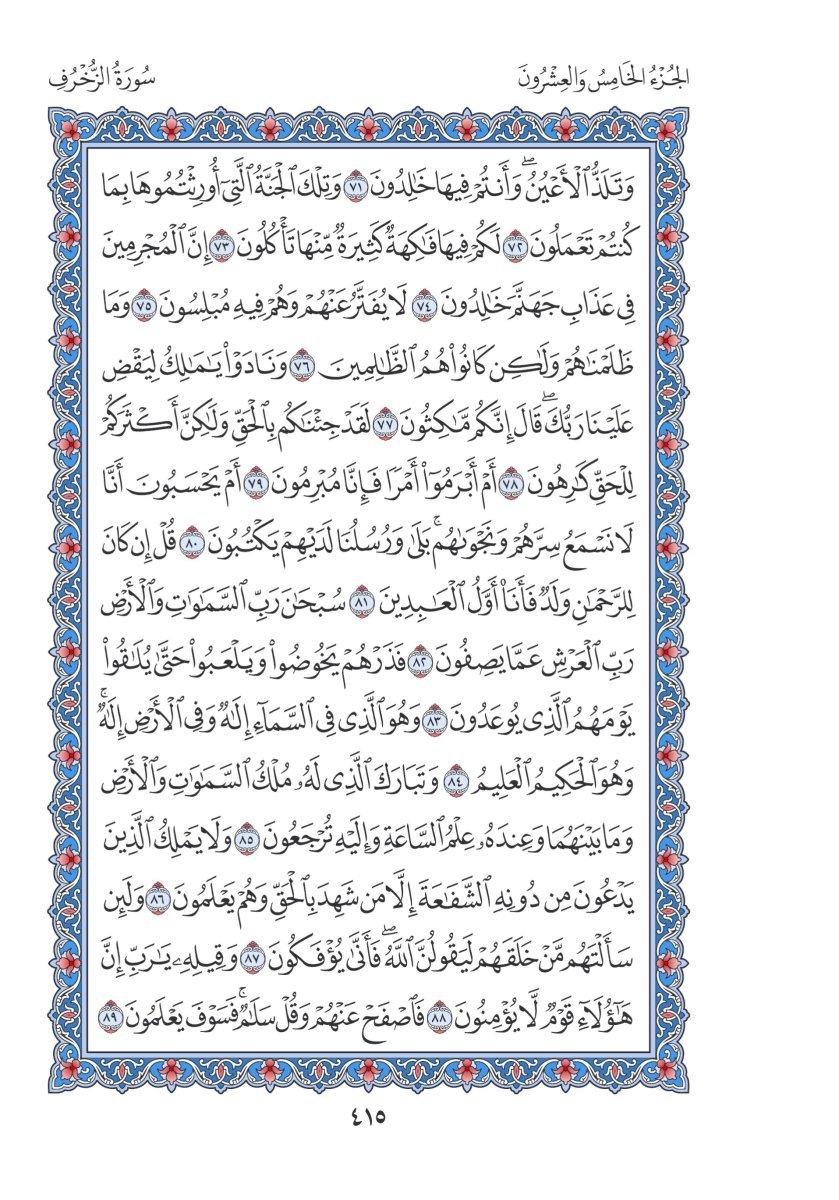 الجُزْءُ الخَامِسُ وَالعِشْرُونَ
سُورَةُ الزُّخْرُفِ
وَتَلَذُّ ٱلْأَعْيُنُ ۖ وَأَنتُمْ فِيهَا خَٰلِدُونَ ٧١ وَتِلْكَ ٱلْجَنَّةُ ٱلَّتِيٓ أُورِثْتُمُوهَا بِمَا
كُنتُمْ تَعْمَلُونَ ٧٢ لَكُمْ فِيهَا فَٰكِهَةٌ كَثِيرَةٌ مِّنْهَا تَأْكُلُونَ ٧٣ إِنَّ ٱلْمُجْرِمِينَ
فِي عَذَابِ جَهَنَّمَ خَٰلِدُونَ ٧٤ لَا يُفَتَّرُ عَنْهُمْ وَهُمْ فِيهِ مُبْلِسُونَ ٧٥ وَمَا
ظَلَمْنَٰهُمْ وَلَٰكِن كَانُوا۟ هُمُ ٱلظَّٰلِمِينَ ٧٦ وَنَادَوْا۟ يَٰمَٰلِكُ لِيَقْضِ
عَلَيْنَا رَبُّكَ ۖ قَالَ إِنَّكُم مَّٰكِثُونَ ٧٧ لَقَدْ جِئْنَٰكُم بِٱلْحَقِّ وَلَٰكِنَّ أَكْثَرَكُمْ
لِلْحَقِّ كَٰرِهُونَ ٧٨ أَمْ أَبْرَمُوٓا۟ أَمْرًا فَإِنَّا مُبْرِمُونَ ٧٩ أَمْ يَحْسَبُونَ أَنَّا
لَا نَسْمَعُ سِرَّهُمْ وَنَجْوَىٰهُم ۚ بَلَىٰ وَرُسُلُنَا لَدَيْهِمْ يَكْتُبُونَ ٨٠ قُلْ إِن كَانَ
لِلرَّحْمَٰنِ وَلَدٌ فَأَنَا۠ أَوَّلُ ٱلْعَٰبِدِينَ ٨١ سُبْحَٰنَ رَبِّ ٱلسَّمَٰوَٰتِ وَٱلْأَرْضِ
رَبِّ ٱلْعَرْشِ عَمَّا يَصِفُونَ ٨٢ فَذَرْهُمْ يَخُوضُوا۟ وَيَلْعَبُوا۟ حَتَّىٰ يُلَٰقُوا۟
يَوْمَهُمُ ٱلَّذِي يُوعَدُونَ ٨٣ وَهُوَ ٱلَّذِي فِي ٱلسَّمَآءِ إِلَٰهٌ وَفِي ٱلْأَرْضِ إِلَٰهٌ ۚ
وَهُوَ ٱلْحَكِيمُ ٱلْعَلِيمُ ٨٤ وَتَبَارَكَ ٱلَّذِي لَهُۥ مُلْكُ ٱلسَّمَٰوَٰتِ وَٱلْأَرْضِ
وَمَا بَيْنَهُمَا وَعِندَهُۥ عِلْمُ ٱلسَّاعَةِ وَإِلَيْهِ تُرْجَعُونَ ٨٥ وَلَا يَمْلِكُ ٱلَّذِينَ
يَدْعُونَ مِن دُونِهِ ٱلشَّفَٰعَةَ إِلَّا مَن شَهِدَ بِٱلْحَقِّ وَهُمْ يَعْلَمُونَ ٨٦ وَلَئِن
سَأَلْتَهُم مَّنْ خَلَقَهُمْ لَيَقُولُنَّ ٱللَّهُ ۖ فَأَنَّىٰ يُؤْفَكُونَ ٨٧ وَقِيلِهِۦ يَٰرَبِّ إِنَّ
هَٰٓؤُلَآءِ قَوْمٌ لَّا يُؤْمِنُونَ ٨٨ فَٱصْفَحْ عَنْهُمْ وَقُلْ سَلَٰمٌ ۚ فَسَوْفَ يَعْلَمُونَ ٨٩
٤١٥